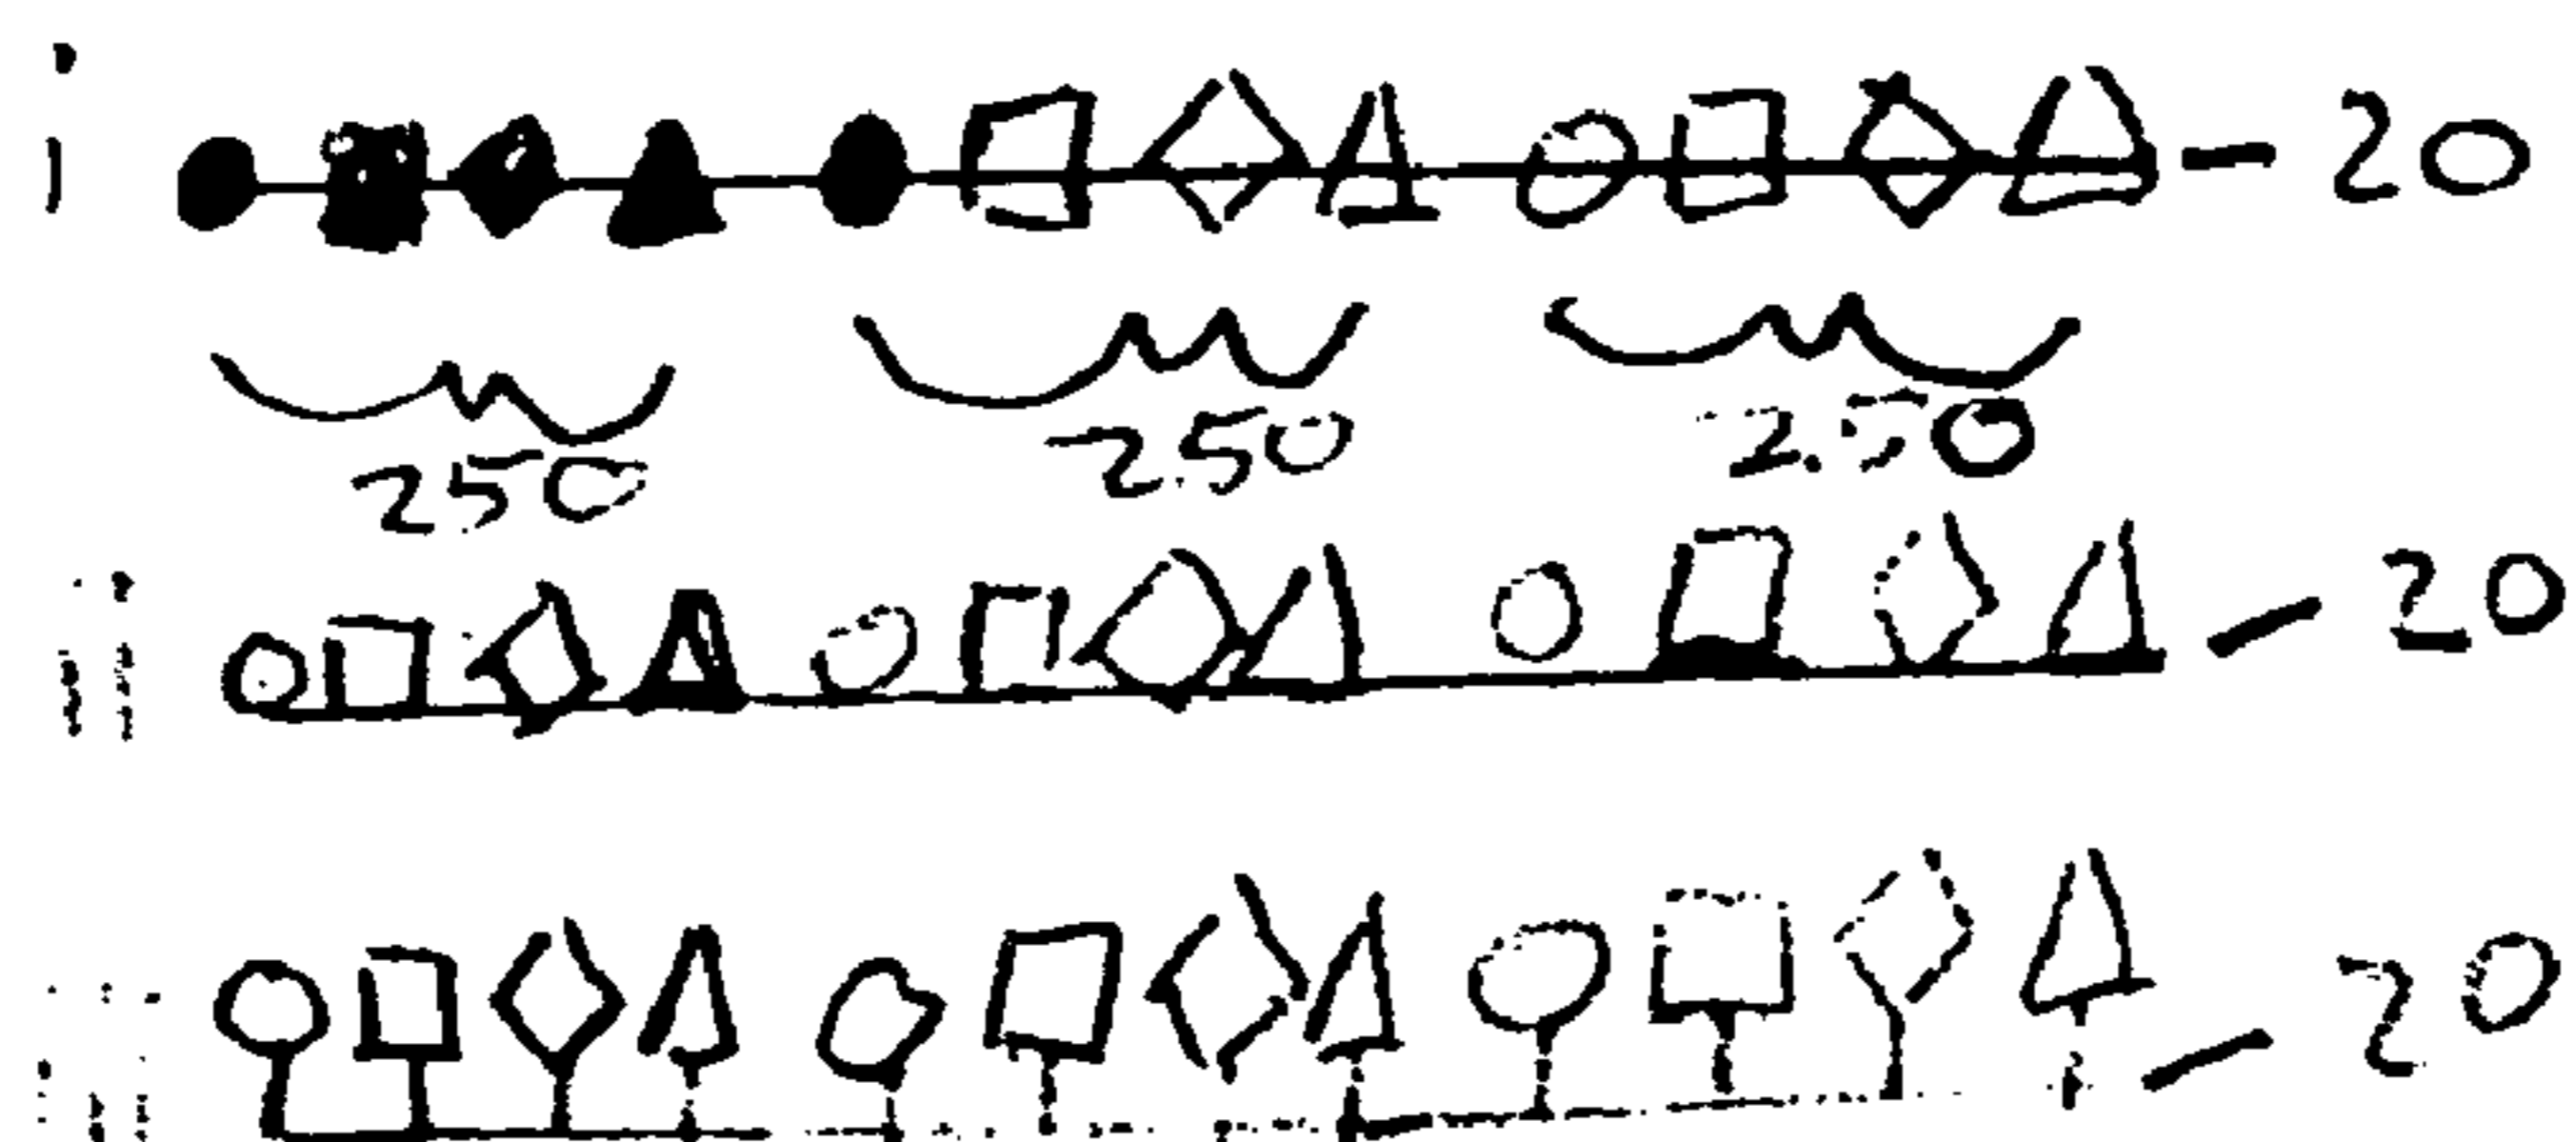 i - 20
250 250 2.50
ii - 20
iii - 20